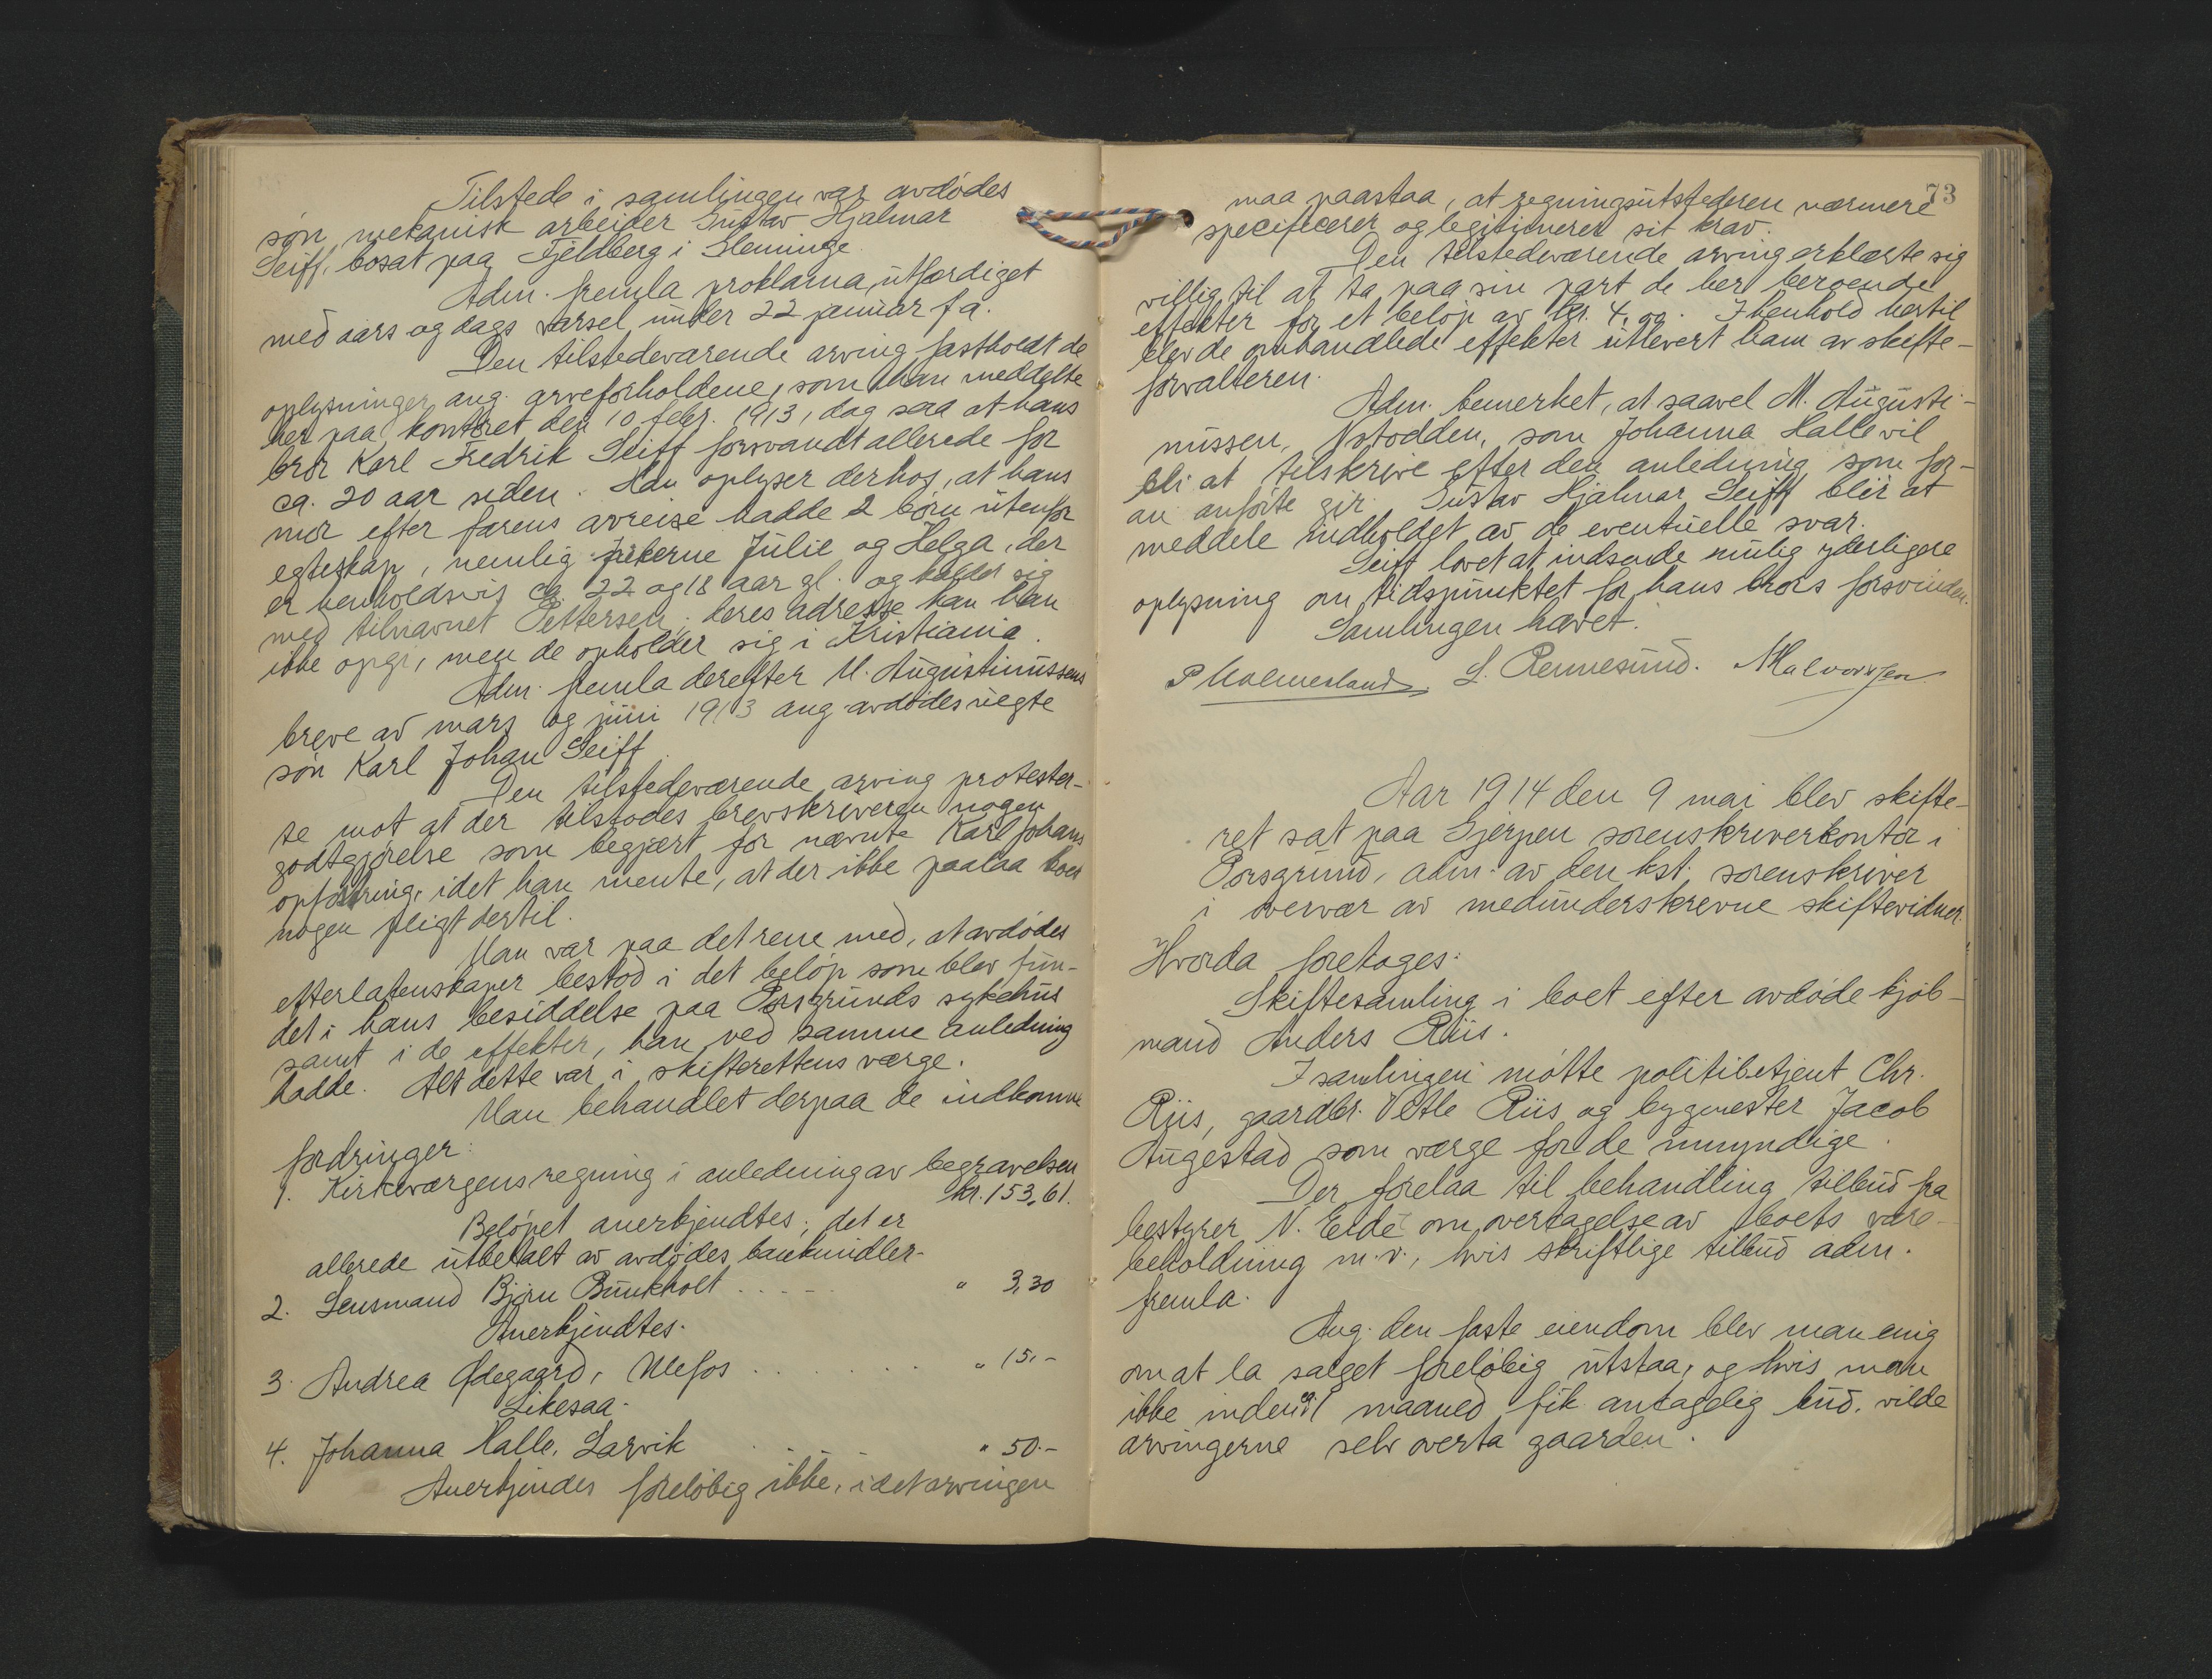 Tilstede i samlingen var avdödes
sön, mekanisk arbeider Gustav Hjalmar
Seiff, bosat paa Fjeldberg i Slemminge
Adm. fremla proklama, utfærdiget
med aars og dags varsel under 22 januar f.a.
Den tilstedeværende arving fastholdt de
oplysninger ang. arveforholdene, som han meddelte
her paa kontoret den 10 febr. 1913, dog saa at hans
bror Karl Fredrik Seiff forsvandt allerede for
ca. 20 aar siden. Han oplyser derhos, at hans
mor efter farens avreise hadde 2 börn utenfor
egteskap, nemlig pikerne Julie og Helga, der
er henholdsvis ca. 22 og 18 aar gl. og kalder sig
med tilnavnet Pettersen; deres adresse kan han
ikke opgi, men de opholder sig i Kristiania.
Adm. fremla derefter M. Augustinussens
breve av mars og juni 1913 ang. avdödes uegte
sön Karl Johan Seiff.
Den tilstedeværende arving protester-
te mot at der tilstodes brevskriveren nogen
godtgjörelse som begjært for nævnte Karl Johans
opfostring, idet han mente, at der ikke paalaa boet
nogen pligt dertil.
Man var paa det rene med, at avdödes
efterlatenskaper bestod i det belöp som blev fun-
det i hans besiddelse paa Porsgrunds sykehus
samt i de effekter, han ved samme anledning
hadde. Alt dette var i skifterettens værge.
Man behandlet derpaa de indkomne
fordringer:
1. Kirkeværgens regning i anledning av begravelsen
kr. 153,61.
Belöpet anerkjendtes; det er
allerede utbetalt av avdödes bankmidler.
2. Lensmand Björn Bunkholt . . . . . " 3,30
Anerkjendtes.
3. Andrea Ødegaard, Ulefos . . . . . . " 15,-
Likesaa.
4. Johanna Halle, Larvik . . . . " 50.-
Anerkjendes foreløbig ikke, idet arvingen
73
maa paastaa, at regningsutstederen nærmere
specificerer og legitimerer sit krav.
Den tilstedeværende arving erklærte sig
villig til at ta paa sin part de her beroende
effekter for et belöp av kr. 4,00. I henhold hertil
blev de omhandlede effekter utlevert ham av skifte-
forvalteren.
Adm. bemerket, at saavel M. Augusti-
nussen, Notodden, som Johanna Halle vil
bli at tilskrive efter den anledning som for-
an anförte gir. Gustav Hjalmar Seiff blir at
meddele indholdet av de eventuelle svar.
Seiff lovet at indsende mulig yderligere
oplysning om tidspunktet for hans brors forsvinden.
Samlingen hævet.
P Holmesland L. Rennesund. Halvorsen
Aar 1914 den 9 mai blev skifte-
ret sat paa Gjerpen sorenskriverkontor i
Porsgrund, adm. av den kst. sorenskriver
i overvær av medunderskrevne skiftevidner.
Hvorda foretages:
Skiftesamling i boet efter avdöde kjöb-
mand Anders Riis.
I samlingen mötte politibetjent Chr.
Riis, gaardbr. Vetle Riis og bygmester Jacob
Augestad som værge for de umyndige.
Der forelaa til behandling tilbud fra
bestyrer N. Eide om overtagelse av boets vare-
beholdning m.v., hvis skriftlige tilbud adm.
fremla.
Ang. den faste eiendom blev man enig
om at la salget forelöbig utstaa, og hvis man
ikke inden ca. 1 maaned fik antagelig bud, vilde
arvingerne selv overta gaarden.